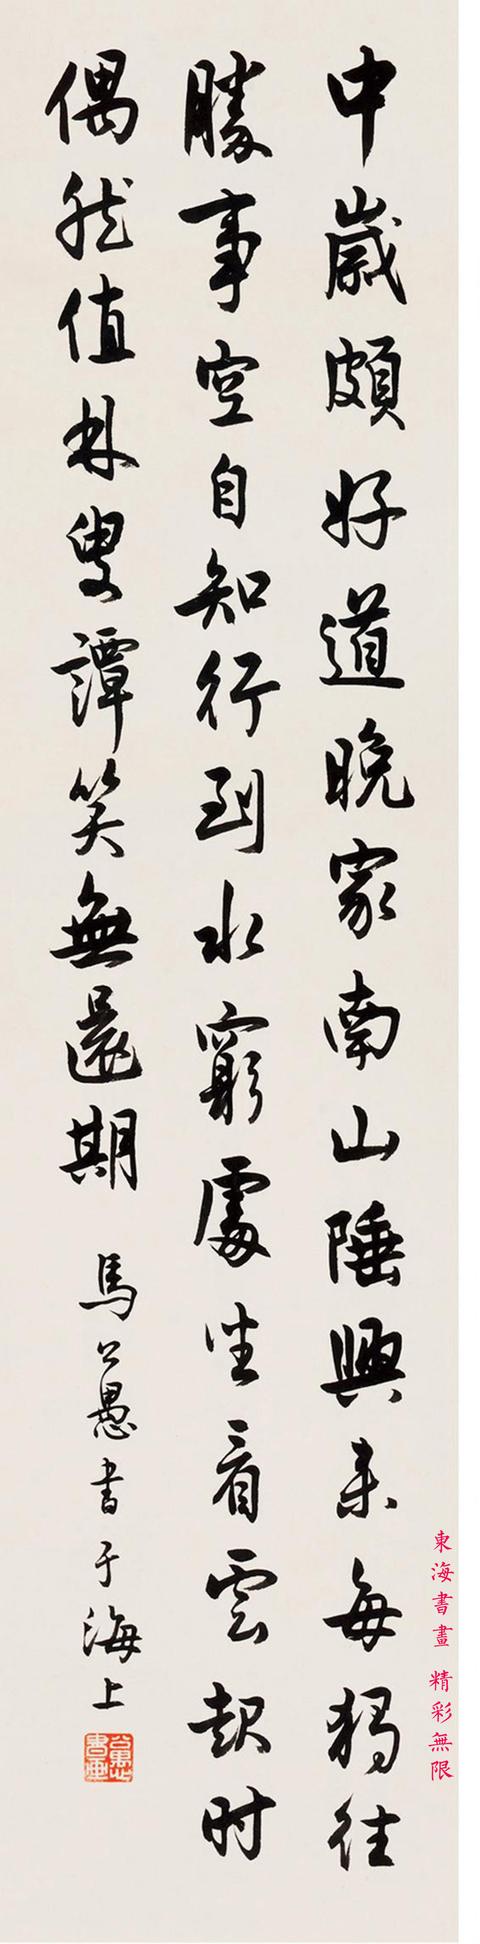 中歲頗好道晚家南山陲興来每獨往
勝事空自知行到水窮處坐看雲起时
偶然值林叟譚笑無還期
馬公愚書于海上
公愚書画
東海書畫 精彩無限